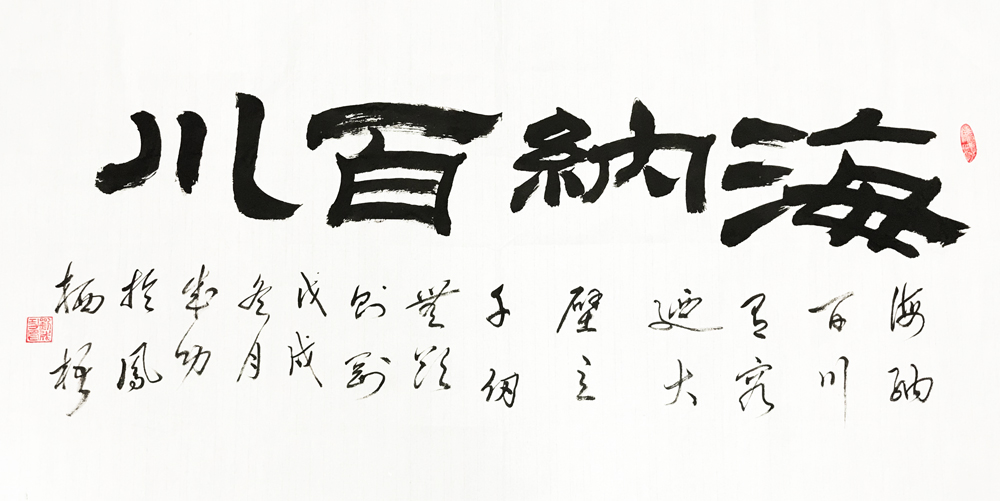 海納百川
海納
百川
有容
迺大
壁立
千仞
無欲
則剛
戊戌
冬月
成功
於鳳
栖